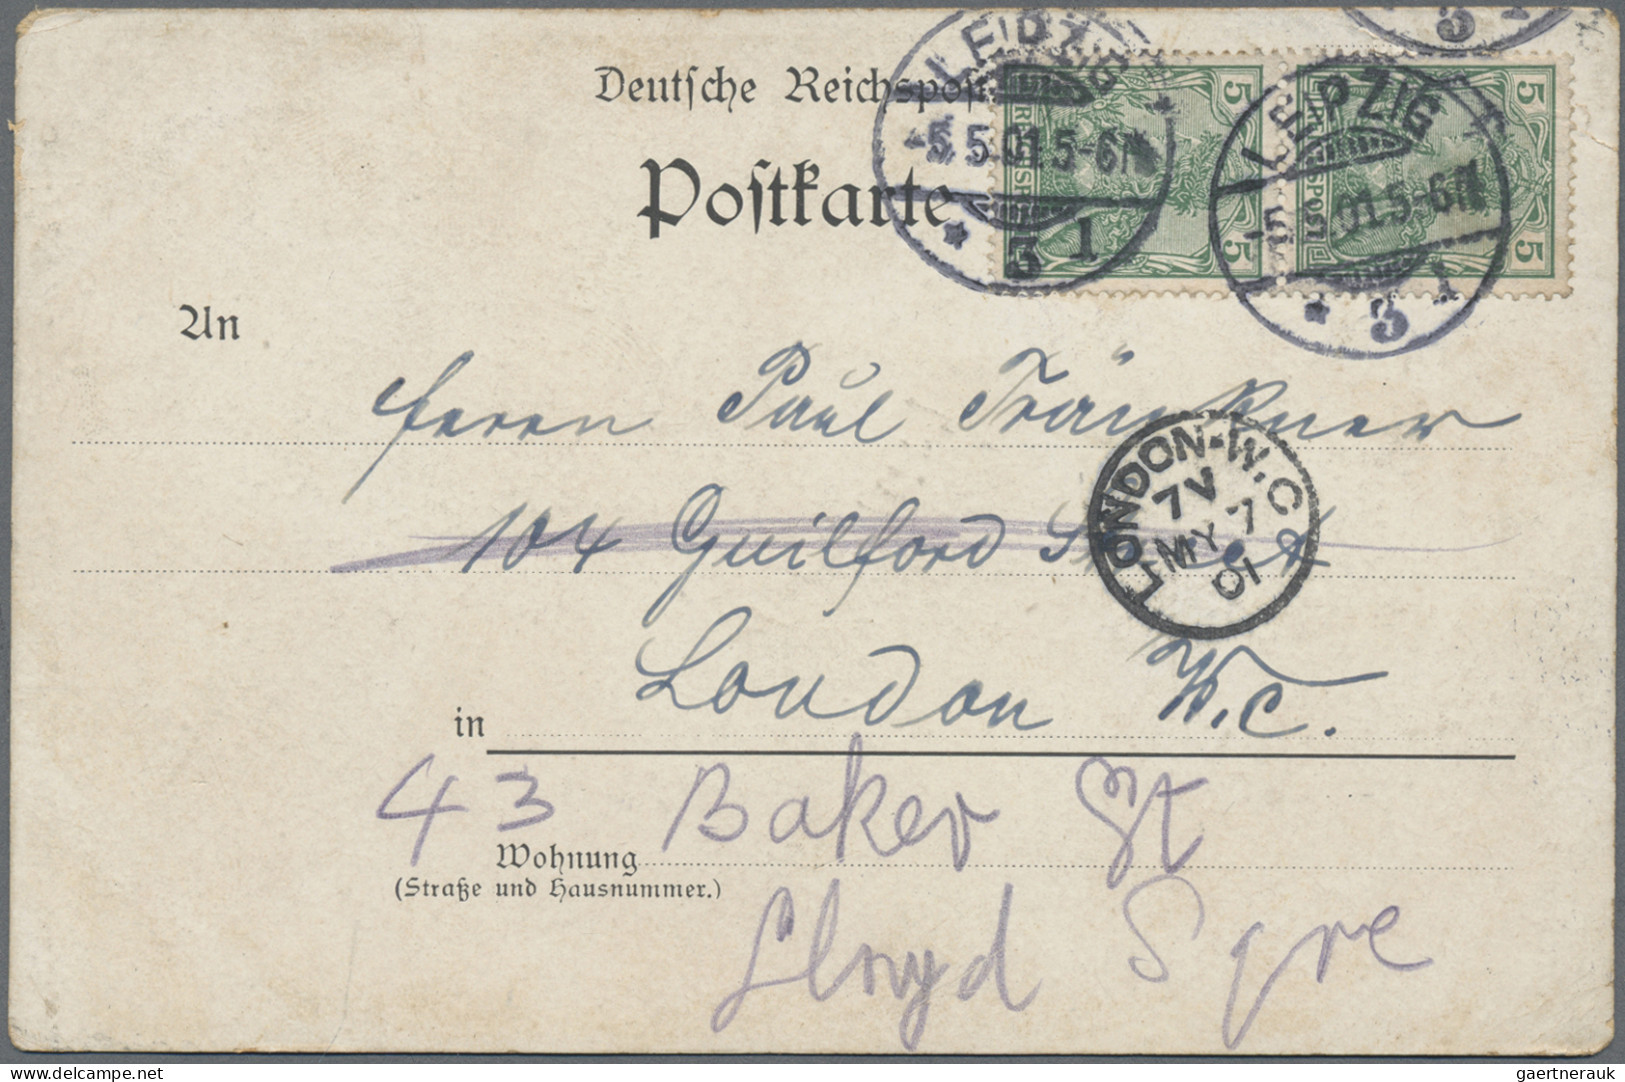 Deutsche Reichspost
Postkarte
LEIPZIG
5.5.01.5-6N
3 1
LEIPZIG
5.5.01.5-6N
3 1
3 1
5
5
5
5
REICHSPOST
An
Herrn Paul Tränkner
104 Guilford Street
LONDON-W.C
7 V
MY 7
01
London W.C.
in
43 Baker St
Wohnung
(Straße und Hausnummer.)
Lloyd Sqre
www.delcampe.net
gaertnerauk